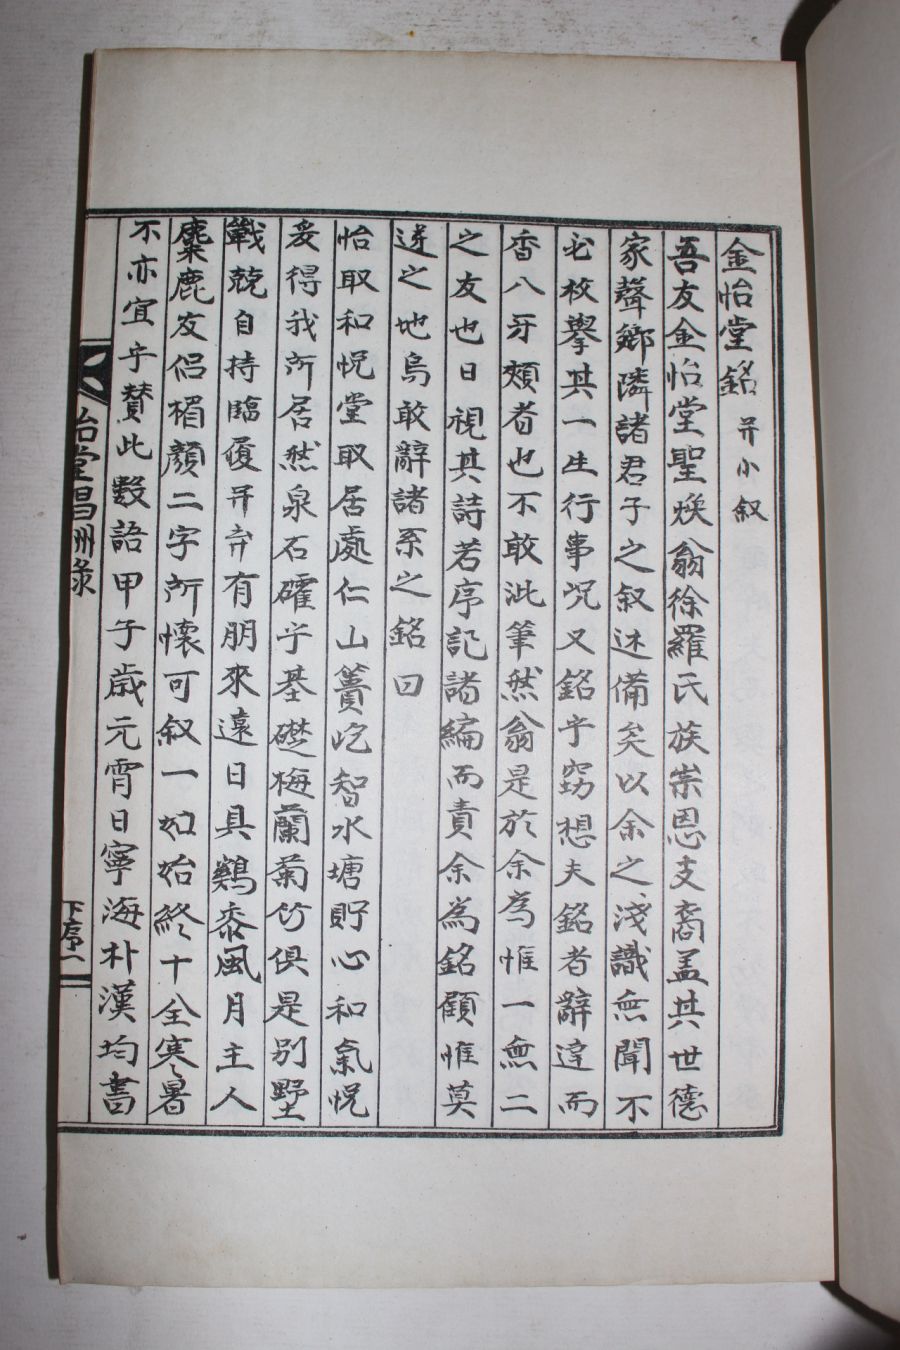 金怡堂銘 幷小叙
吾友金怡堂聖煥翁徐羅氏族崇恩支裔盖其世德
家聲鄉隣諸君子之叙述備矣以余之淺識無聞不
必枚擧其一生行事况又銘乎窃想夫銘者辭達而
香八牙頰者也不敢泚筆然翁是於余爲惟一無二
之友也日視其詩若序記諸編而責余爲銘顧惟莫
逆之地烏敢辭諸系之銘曰
怡取和悅堂取居處仁山簣屹智水塘貯心和氣悅
爰得我所居然泉石確乎基礎梅蘭菊竹俱是別墅
戰兢自持臨履幷弆有朋來遠日具鷄黍風月主人
麋鹿友侶楣顏二字所懷可叙一如始終十全寒暑
不亦宜乎贊此數語甲子歲元霄日寧海朴漢均書
怡堂昌洲錄
下序一